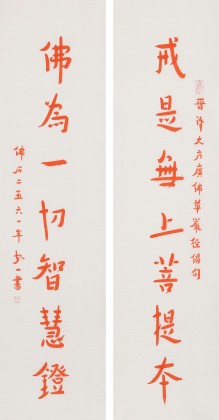 晉譯大方廣佛華嚴經偈句
戒是無上菩提本
佛為一切智慧鐙
佛二五六一年 弘一書